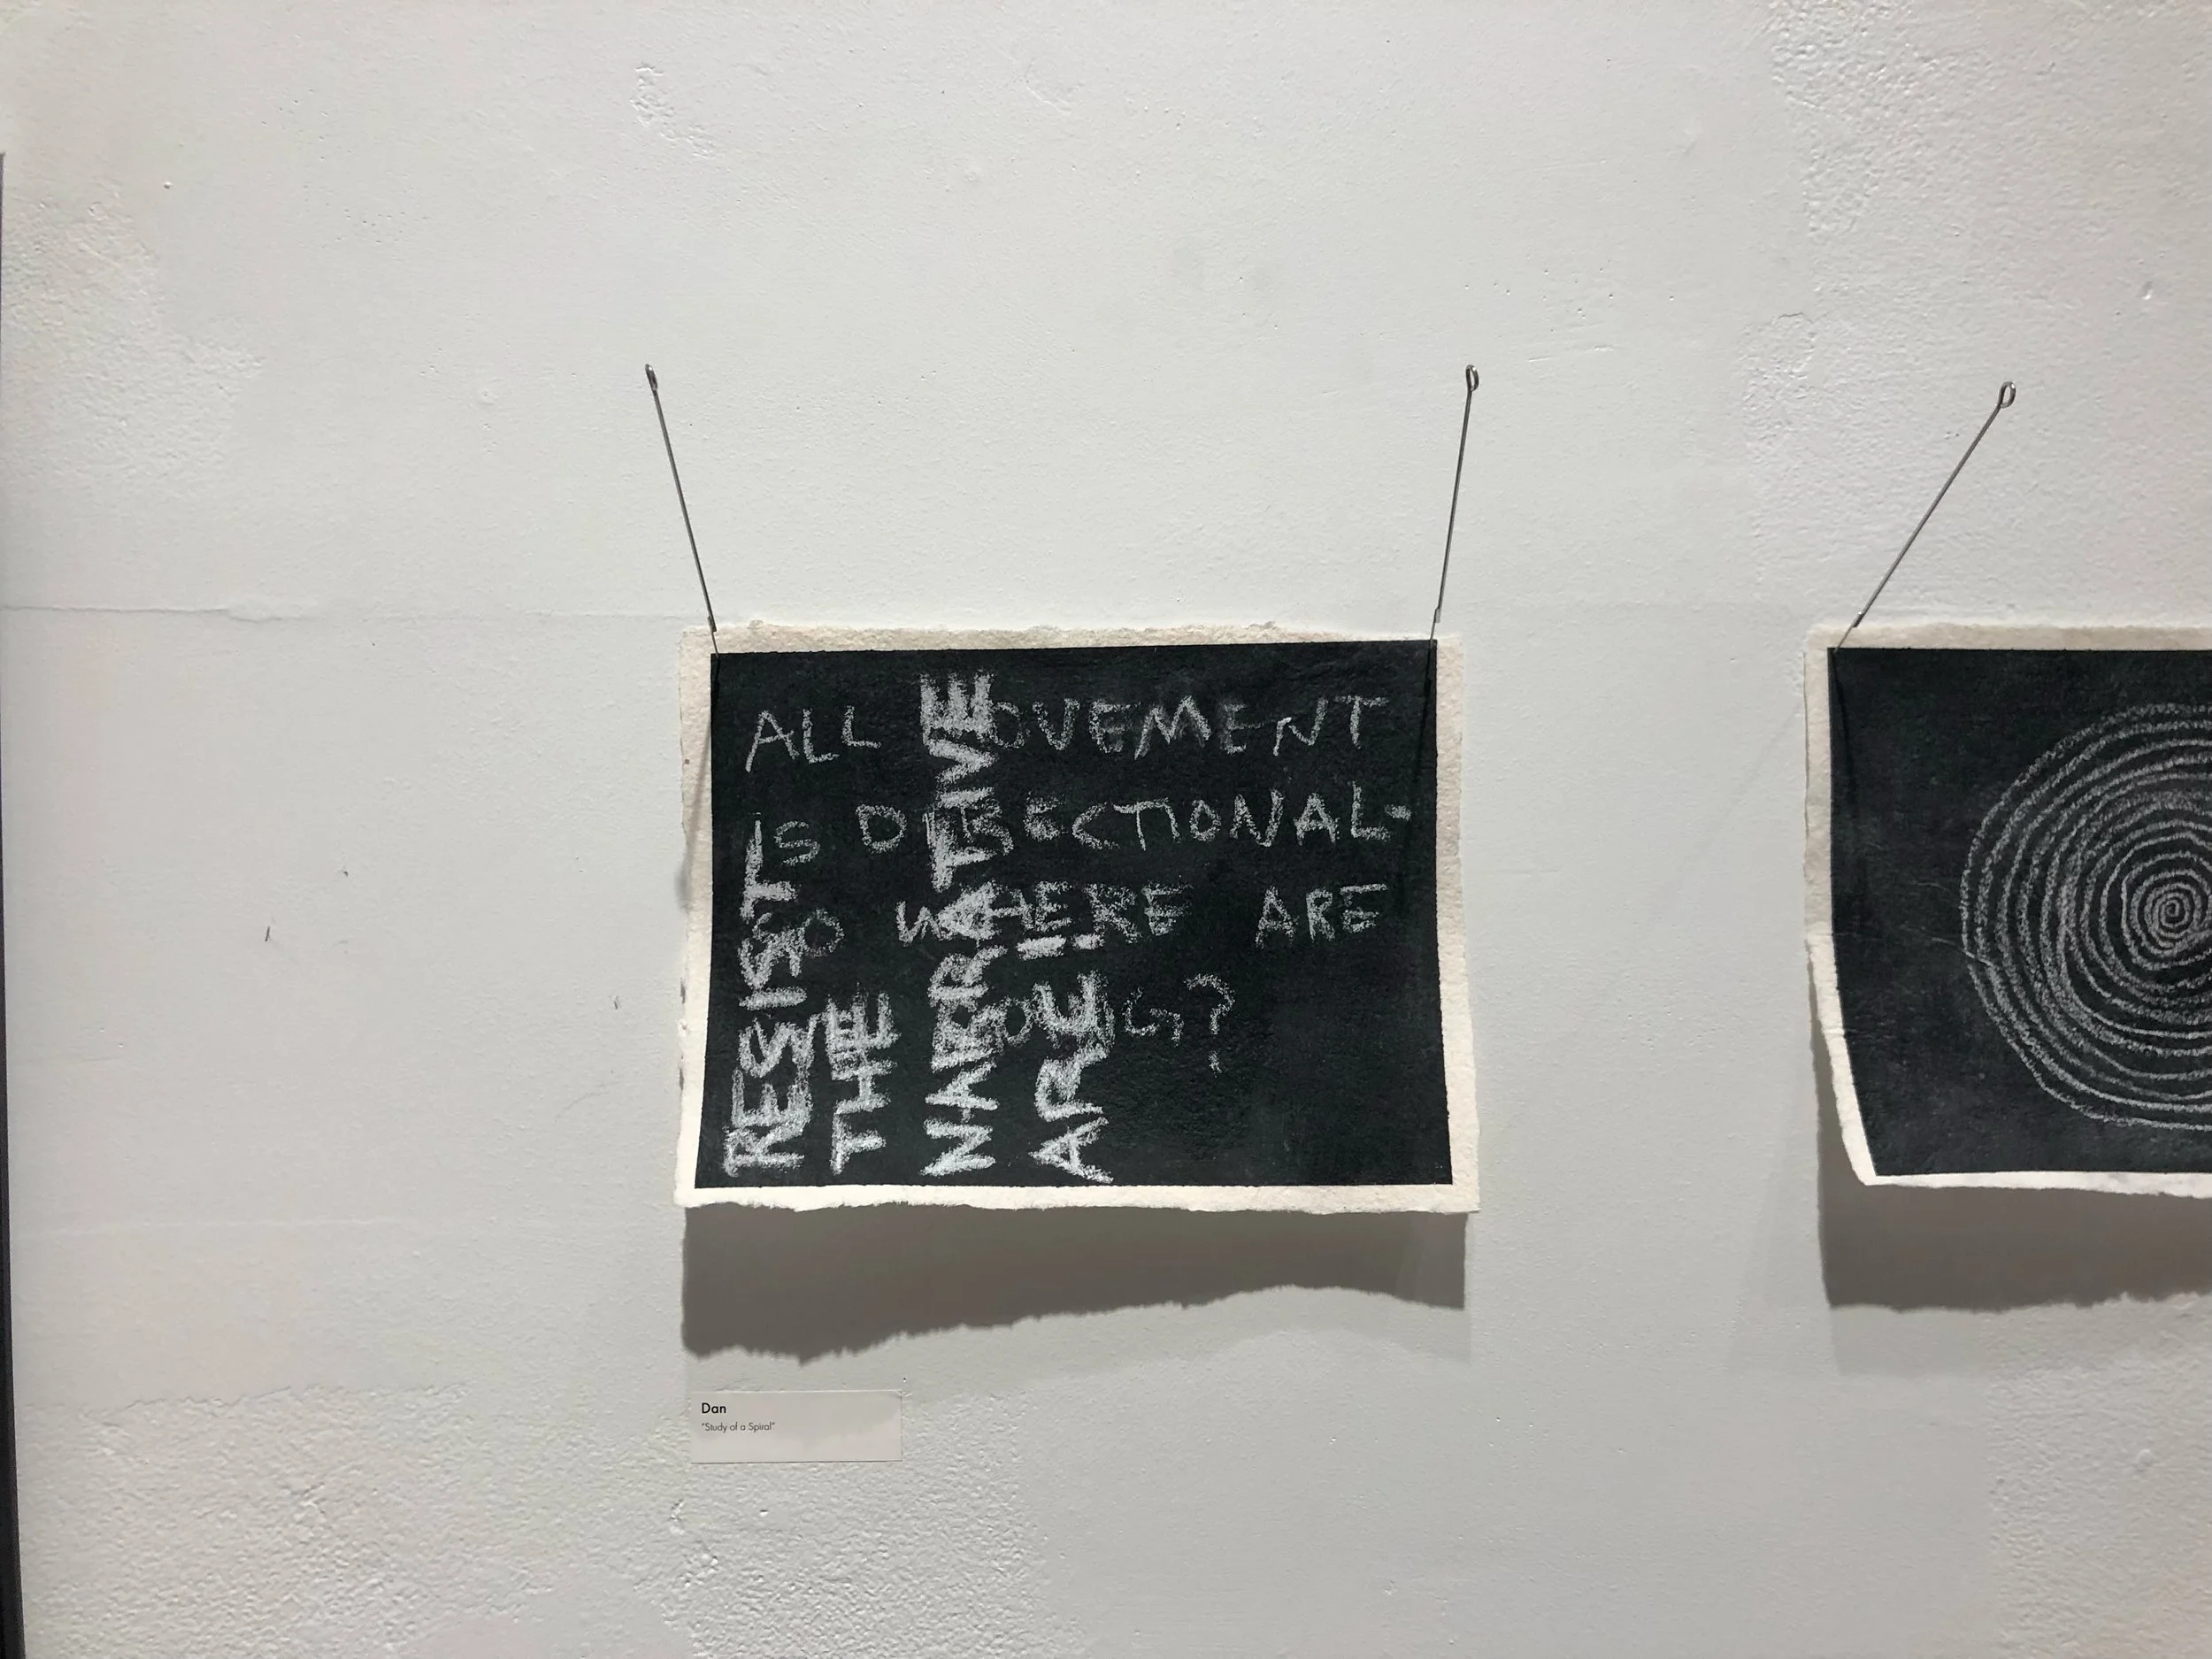 ALL MOVEMENT
IS DIRECTIONAL-
SO WHERE ARE
GOING?
RESIST
THE
NARRATIVE
ARC!
Dan
"Study of a Spiral"